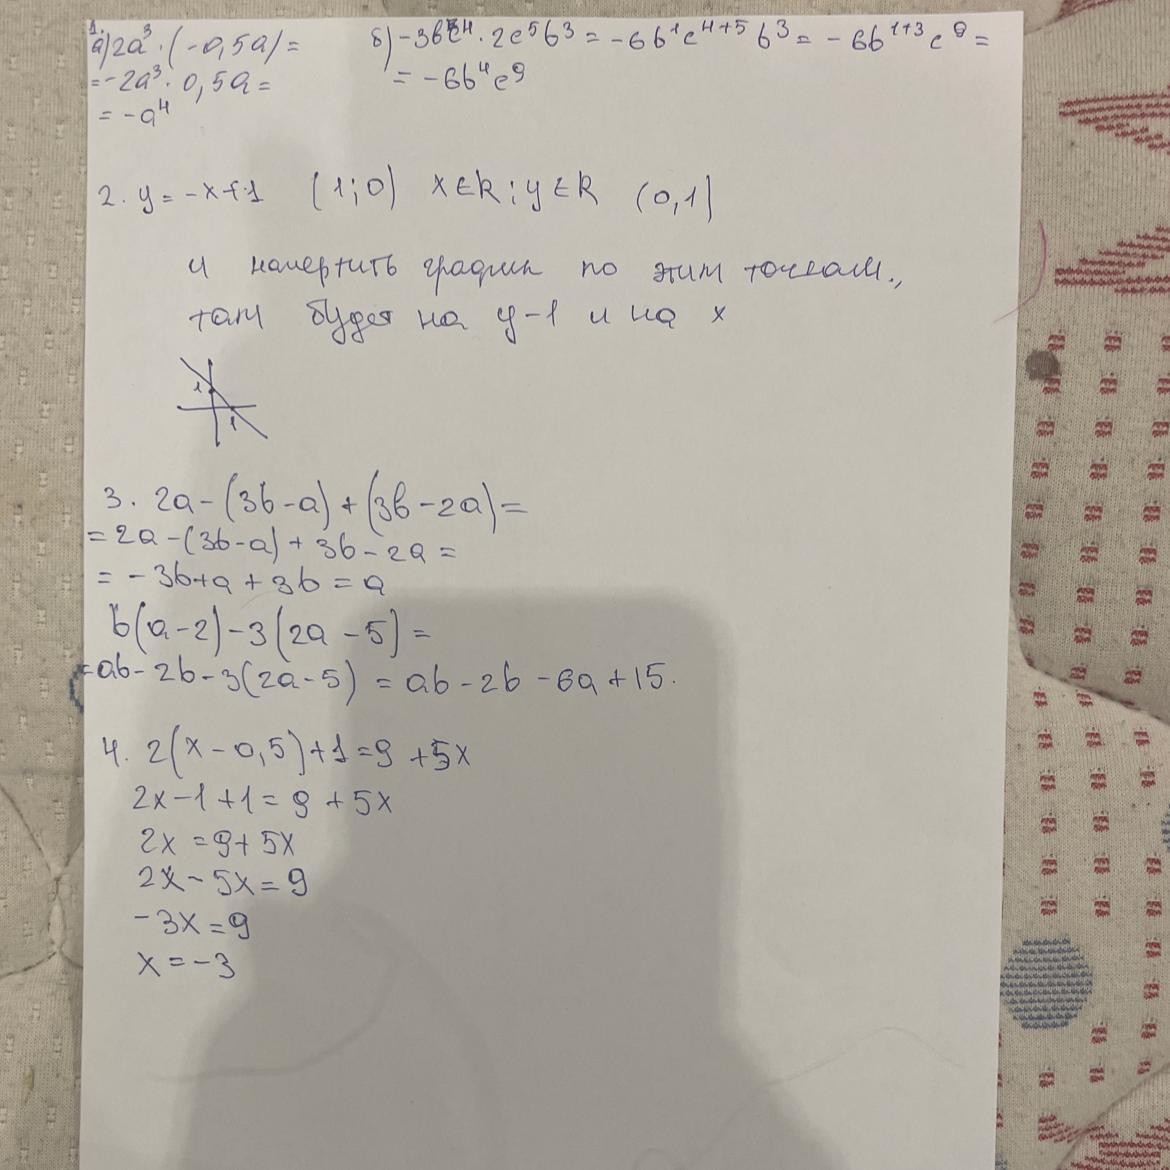 1.
а) 2a³ · (-0,5a) =
= -2a³ · 0,5a =
= -a⁴
б) -3bc⁴ · 2c⁵b³ = -6b¹c⁴⁺⁵b³ = -6b¹⁺³c⁹ =
= -6b⁴c⁹
2. y = -x + 1 (1;0) x∈R; y∈R (0,1)
и начертить график по этим точкам.,
там будет на y-1 и на x
1
1
3. 2a - (3b - a) + (3b - 2a) =
= 2a - (3b - a) + 3b - 2a =
= -3b + a + 3b = a
b(a - 2) - 3(2a - 5) =
= ab - 2b - 3(2a - 5) = ab - 2b - 6a + 15.
4. 2(x - 0,5) + 1 = 9 + 5x
2x - 1 + 1 = 9 + 5x
2x = 9 + 5x
2x - 5x = 9
-3x = 9
x = -3